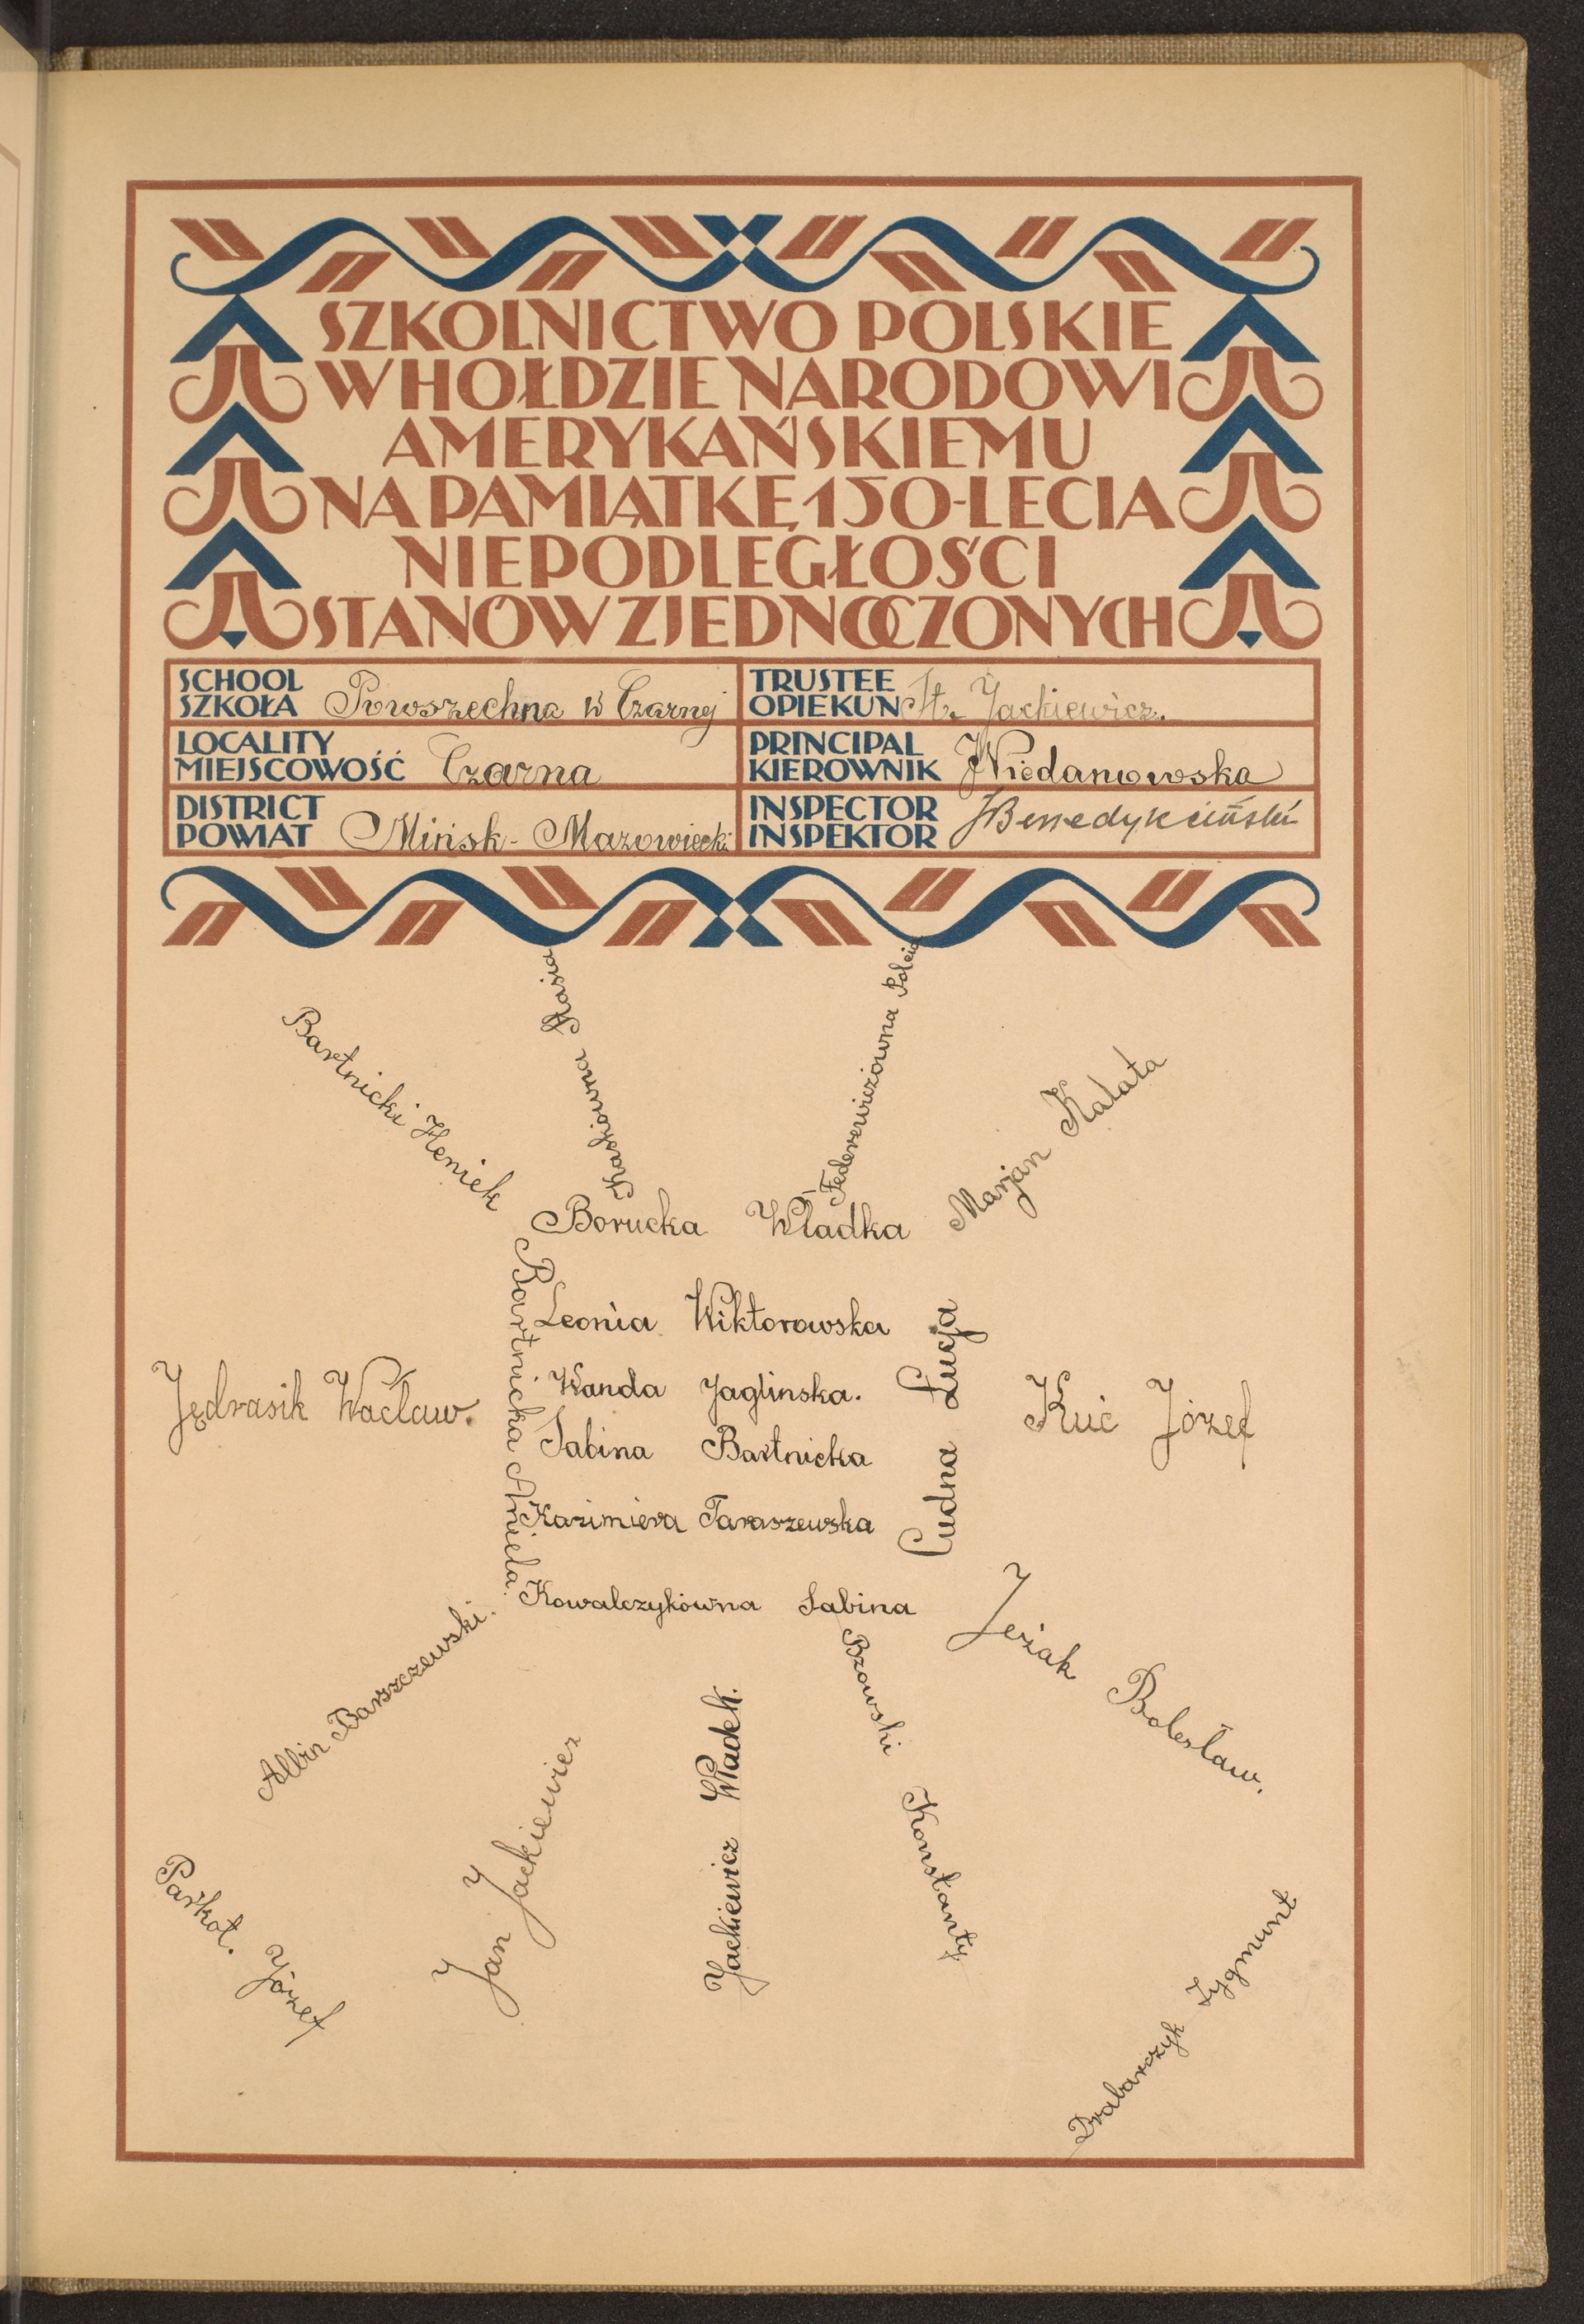 SZKOLNICTWO POLSKIE
W HOŁDZIE NARODOWI
AMERYKAŃSKIEMU
NA PAMIĄTKĘ 150-LECIA
NIEPODLEGŁOŚCI
STANÓW ZJEDNOCZONYCH
SCHOOL
SZKOŁA Powszechna w Czarnej
TRUSTEE
OPIEKUN St. Jackiewicz.
LOCALITY
MIEJSCOWOŚĆ Czarna
PRINCIPAL
KIEROWNIK Niedanowska
DISTRICT
POWIAT Mińsk-Mazowiecki
INSPECTOR
INSPEKTOR Benedykciński
Bartnicki Heniek
Stasia
Federewiczówna Polcia
Marjan Kałata
Borucka Władka
Bartnicka Aniela.
Leonia Wiktorowska
Wanda Jaglinska.
Sabina Bartnicka
Kazimiera Taraszewska
Kowalczykówna Sabina
Cudna Łucja
Jędrasik Wacław.
Kuć Józef
Albin Barszczewski.
Jeżak Bolesław.
Parkot. Józef
Jan Jackiewicz
Jackiewicz Władek.
Bzowski Konstanty
Drabarczyk Zygmunt